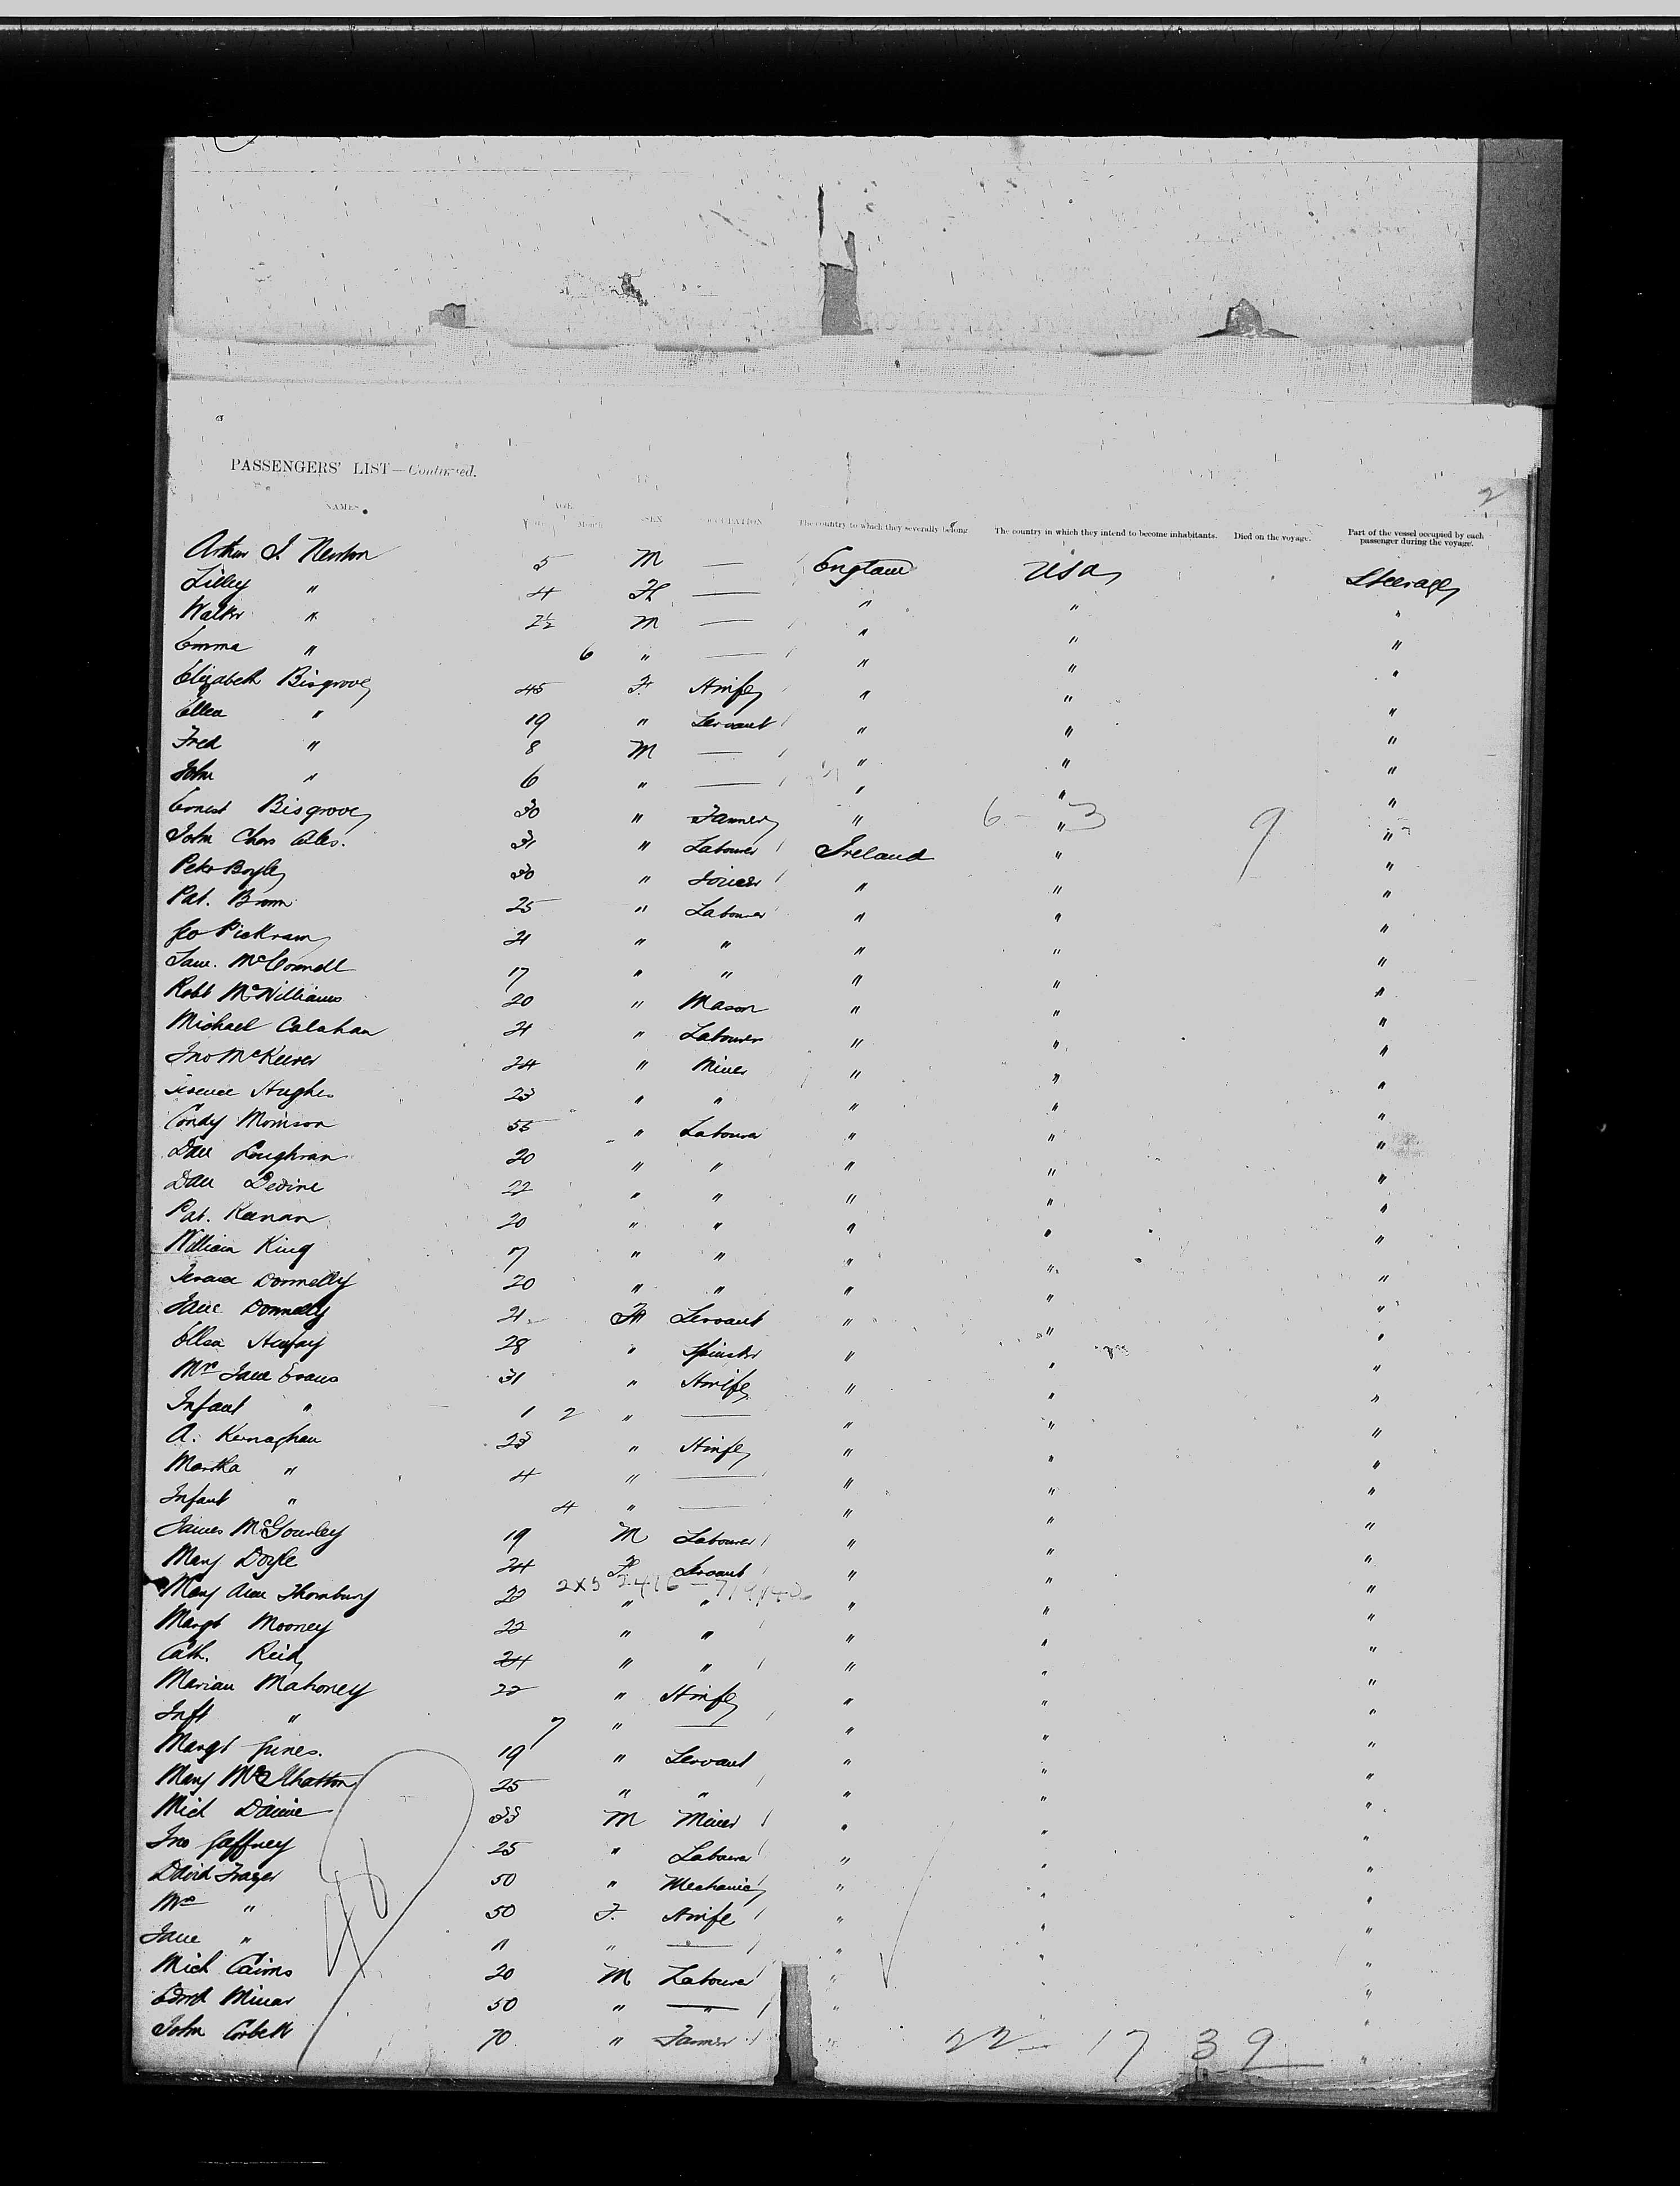 2
PASSENGERS' LIST—Continued.
NAMES. AGE. Years Month SEX OCCUPATION The country to which they severally belong. The country in which they intend to become inhabitants. Died on the voyage. Part of the vessel occupied by each passenger during the voyage.
Arthur J. Newton 5 M — England USA Steerage
Lilley " 4 F — " " "
Walter " 2½ M — " " "
Emma " 6 " — " " "
Elizabeth Bisgrove 45 F. Hwife " " "
Ellen " 19 " Servant " " "
Fred " 8 M — " " "
John " 6 " — " " "
Ernest Bisgrove 30 " Farmer " " "
6 - 3 9
John Chas 31 " Labourer Ireland " "
Peter Boyle 30 " Joiner " " "
Pat. Brown 25 " Labourer " " "
Geo Pickram 21 " " " " "
McConnell 17 " " " " "
Robt McWilliams 20 " Mason " " "
Michael Calahan 21 " Labourer " " "
Jno McKeever 24 " Miner " " "
Terence Hughes 23 " " " " "
Condy Morrison 55 " Labourer " " "
Dan Loughran 20 " " " " "
Dan Devine 22 " " " " "
Pat. Keenan 20 " " " " "
William King 17 " " " " "
Terence Donnelly 20 " " " " "
Jane Donnelly 21 F Servant " " "
Ellen 28 " Spinster " " "
Mrs Jane Evans 31 " Hwife " " "
Infant " 1 2 " — " " "
A. Kernaghan 23 " Hwife " " "
Martha " 4 " — " " "
Infant " 4 " — " " "
James McGourley 19 M Labourer " " "
Mary Doyle 24 F Servant " " "
Mary Ann Thornbury 22 " " " " "
Margt Mooney 22 " " " " "
Cath. Reid 24 " " " " "
Marian Mahoney 22 " Hwife " " "
Inft " 7 " — " " "
Margt Gines. 19 " Servant " " "
Mary McIlhatton 25 " " " " "
Mich 33 M Miner " " "
Jno Gaffney 25 " Labourer " " "
David Frazer 50 " Mechanic " " "
Mrs " 50 F. Hwife " " "
Jane " 11 " — " " "
Mich Cairns 20 M Labourer " " "
Edwd Minar 50 " " " " "
John Corbett 70 " Farmer " " "
48
22 - 17 39